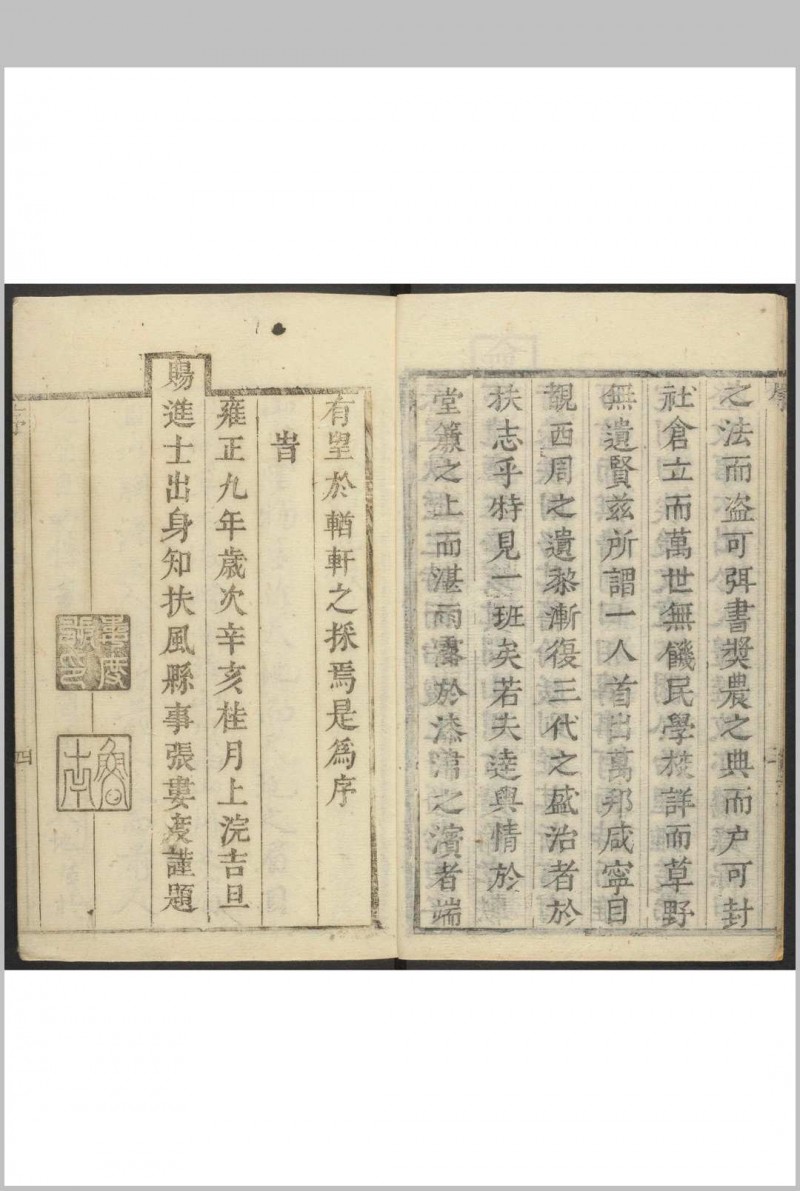 之法而盗可弭書奬農之典而户可封
社倉立而萬世無饑民學校詳而草野
無遺賢兹所謂一人首出萬邦咸寧目
覩西周之遺黎漸復三代之盛治者於
扶志乎特見一班矣若夫達輿情於
堂簾之上而湛雨露於漆漳之濱者端
有望於輶軒之採焉是為序
旹
雍正九年歲次辛亥桂月上浣吉旦
賜進士出身知扶風縣事張婁度謹題
四